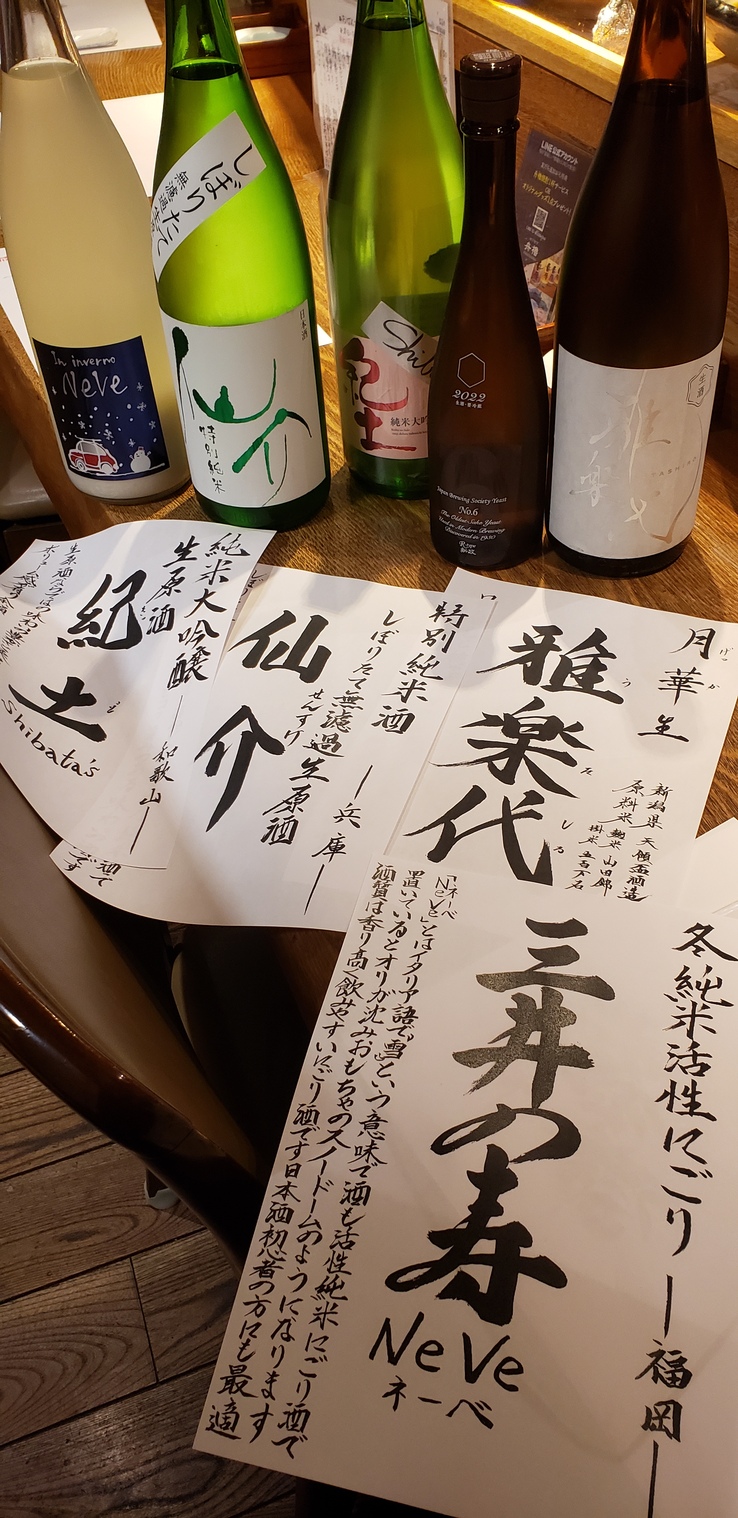 In inverno
Neve
しぼりたて
無濾過生
日本酒
仙介
特別純米
Shib
紀土
純米大吟
2022
生酒・要冷蔵
Japan Brewing Society Yeast
No.6
The Oldest Sake Yeast
Used in Modern Brewing
Discovered in 1930
生酒
雅楽代
LINE 公式アカウント
純米大吟醸
生原酒
―和歌山―
紀土
Shibata's
特別純米酒
しぼりたて無濾過生原酒
―兵庫―
仙介
せんすけ
月華 生
げっか
雅楽代
うたしろ
新潟県 天領盃酒造
原料米 麹米 山田錦
掛米 五百万石
冬純米活性にごり ―福岡―
三井の寿
NeVe
ネーベ
「ネーベNeVe」とはイタリア語で『雪』という意味で酒も活性純米にごり酒で
置いているとオリが沈みおもちゃのスノードームのようになります
酒質は香り高く飲みやすいにごり酒です日本酒初心者の方にも最適